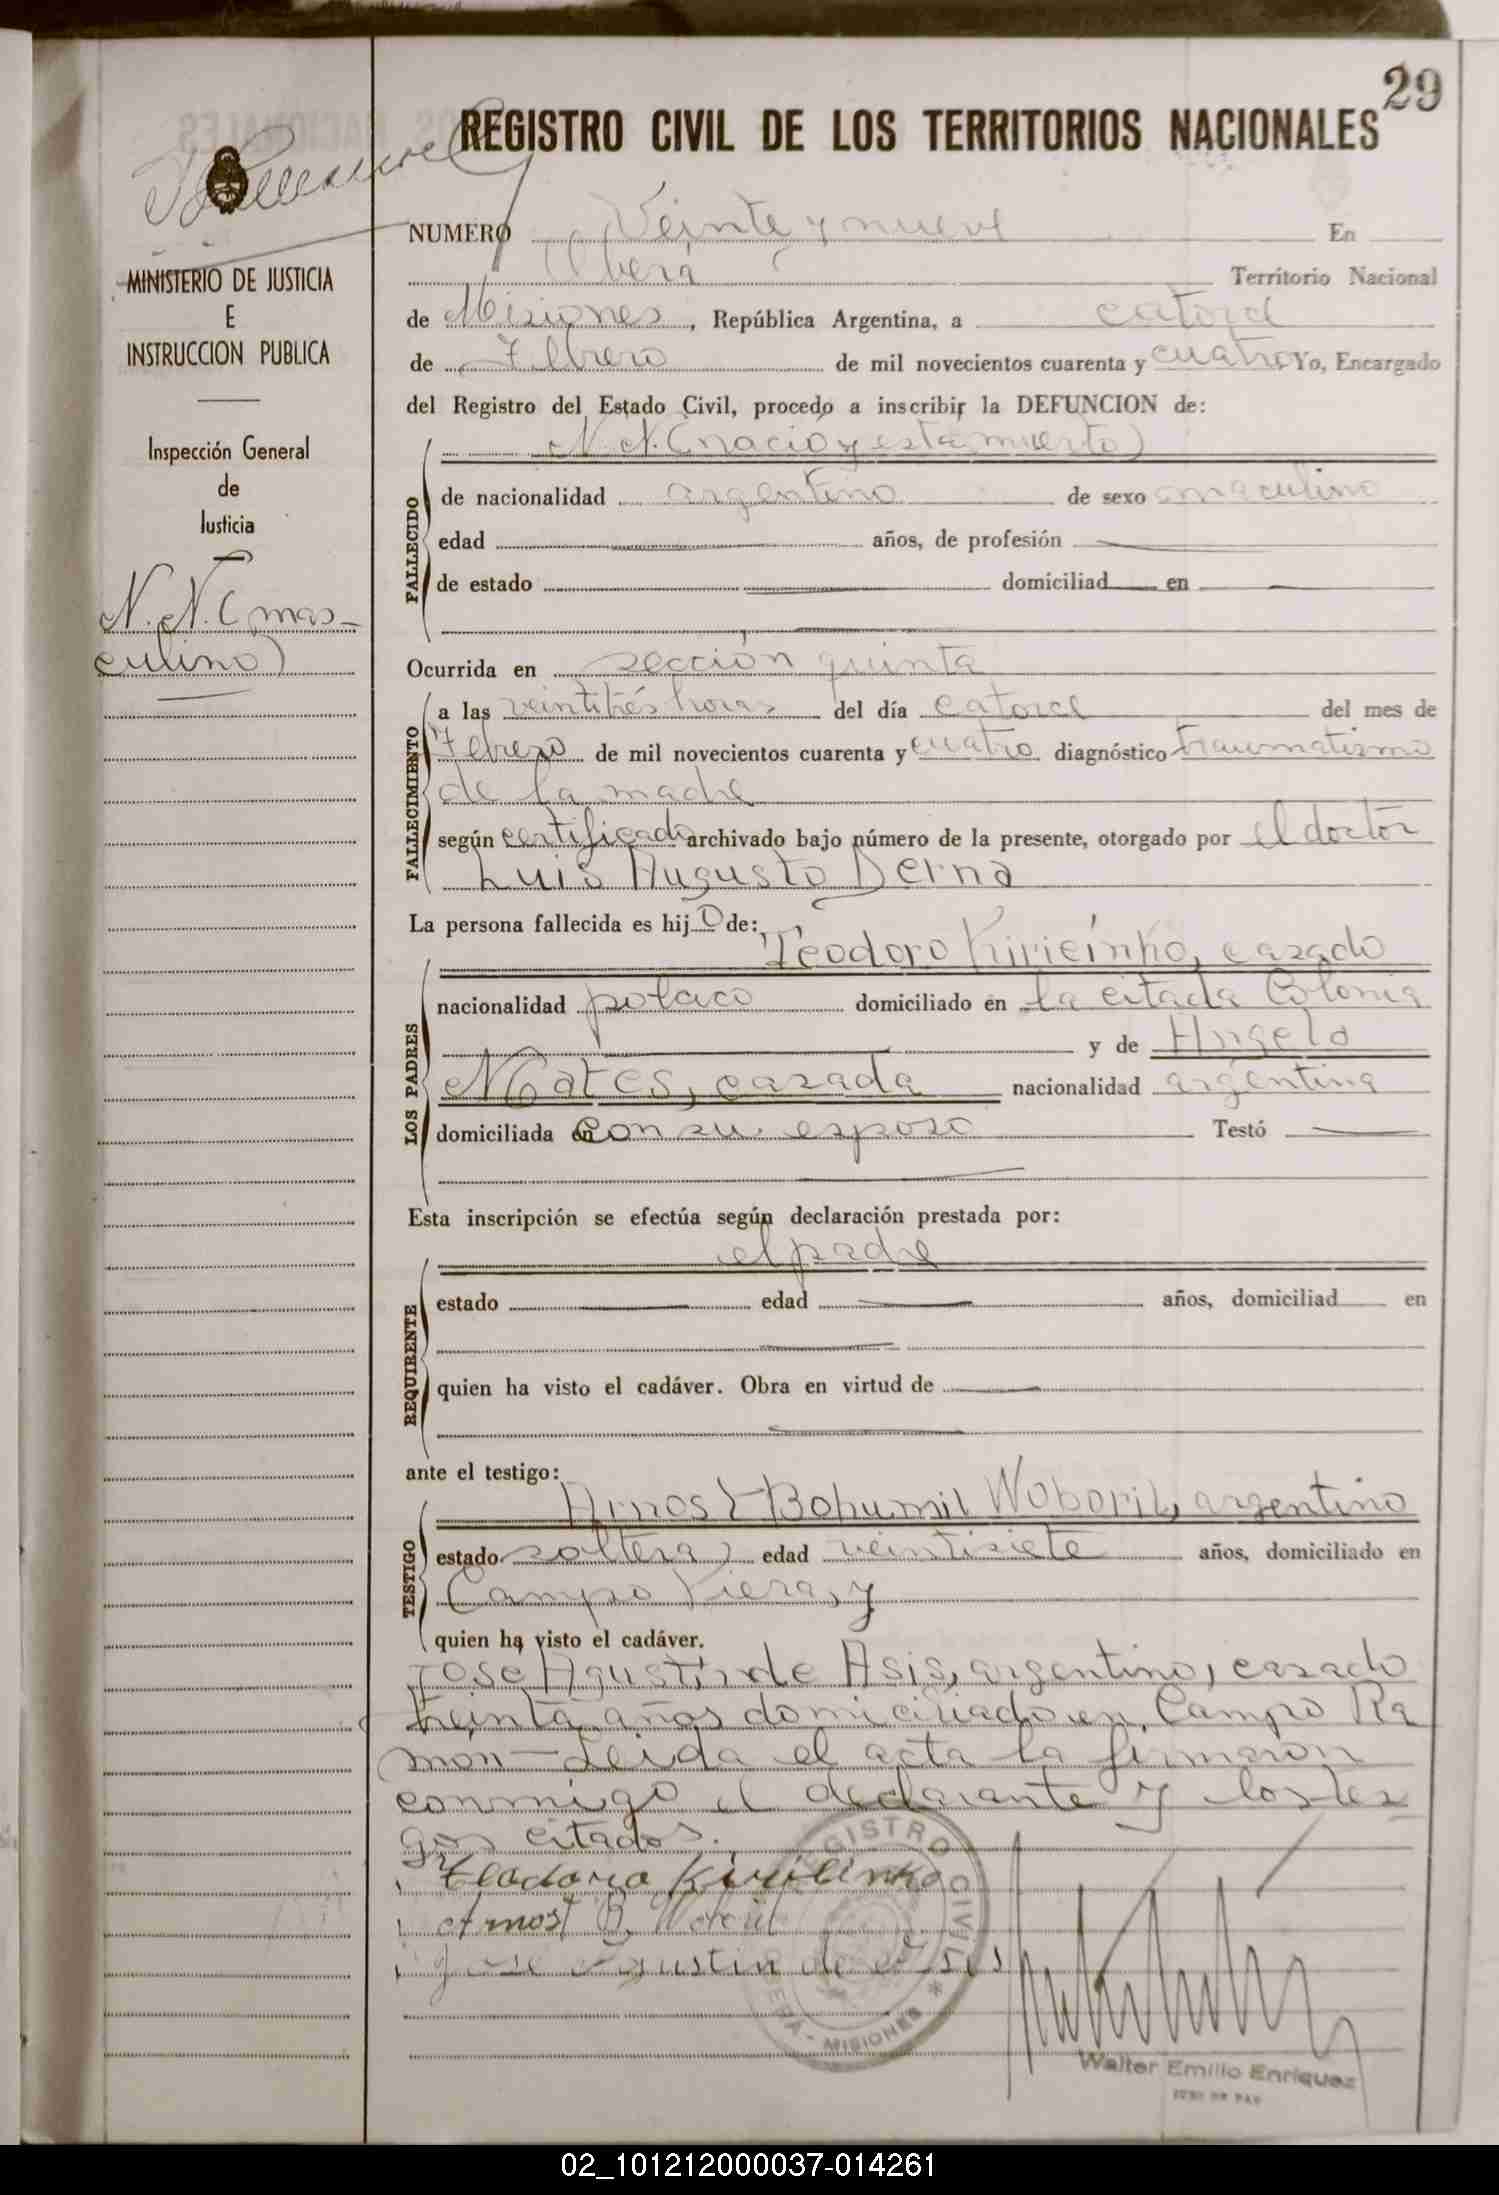 29
REGISTRO CIVIL DE LOS TERRITORIOS NACIONALES
NUMERO Veinte y nueve En
Oberá Territorio Nacional
de Misiones, República Argentina, a catorce
de Febrero de mil novecientos cuarenta y cuatro Yo, Encargado
del Registro del Estado Civil, procedo a inscribir la DEFUNCION de:
N.N. (nació y esta muerto)
de nacionalidad argentino de sexo masculino
edad años, de profesión
de estado domiciliad en
FALLECIDO
Ocurrida en sección quinta
a las veintitrés horas del día catorce del mes de
Febrero de mil novecientos cuarenta y cuatro diagnóstico traumatismo
de la madre
según certificado archivado bajo número de la presente, otorgado por el doctor
Luis Augusto Derna
FALLECIMIENTO
La persona fallecida es hijo de:
Teodoro Kirieinko, casado
nacionalidad polaco domiciliado en la citada Colonia
y de Angela
Mates, casada nacionalidad argentina
domiciliada en con su esposo Testó
LOS PADRES
Esta inscripción se efectúa según declaración prestada por:
el padre
estado edad años, domiciliad en
quien ha visto el cadáver. Obra en virtud de
REQUIRENTE
ante el testigo:
Arnost Bohumil Woboril, argentino
estado soltero, edad veintisiete años, domiciliado en
Campo Viera, y
TESTIGO
quien ha visto el cadáver.
Jose Agustin de Asis, argentino, casado
treinta años domiciliado en Campo Ra
mon—Leida el acta la firmaron
conmigo el declarante y los tes
gos citados.
Teodoro
Arnost B.
Jose Agustin de Asis
REGISTRO CIVIL
OBERA - MISIONES *
Walter Emilio Enriquez
JUEZ DE PAZ
MINISTERIO DE JUSTICIA
E
INSTRUCCION PUBLICA
Inspección General
de
Justicia
N.N. (mas-
culino)
02_101212000037-014261